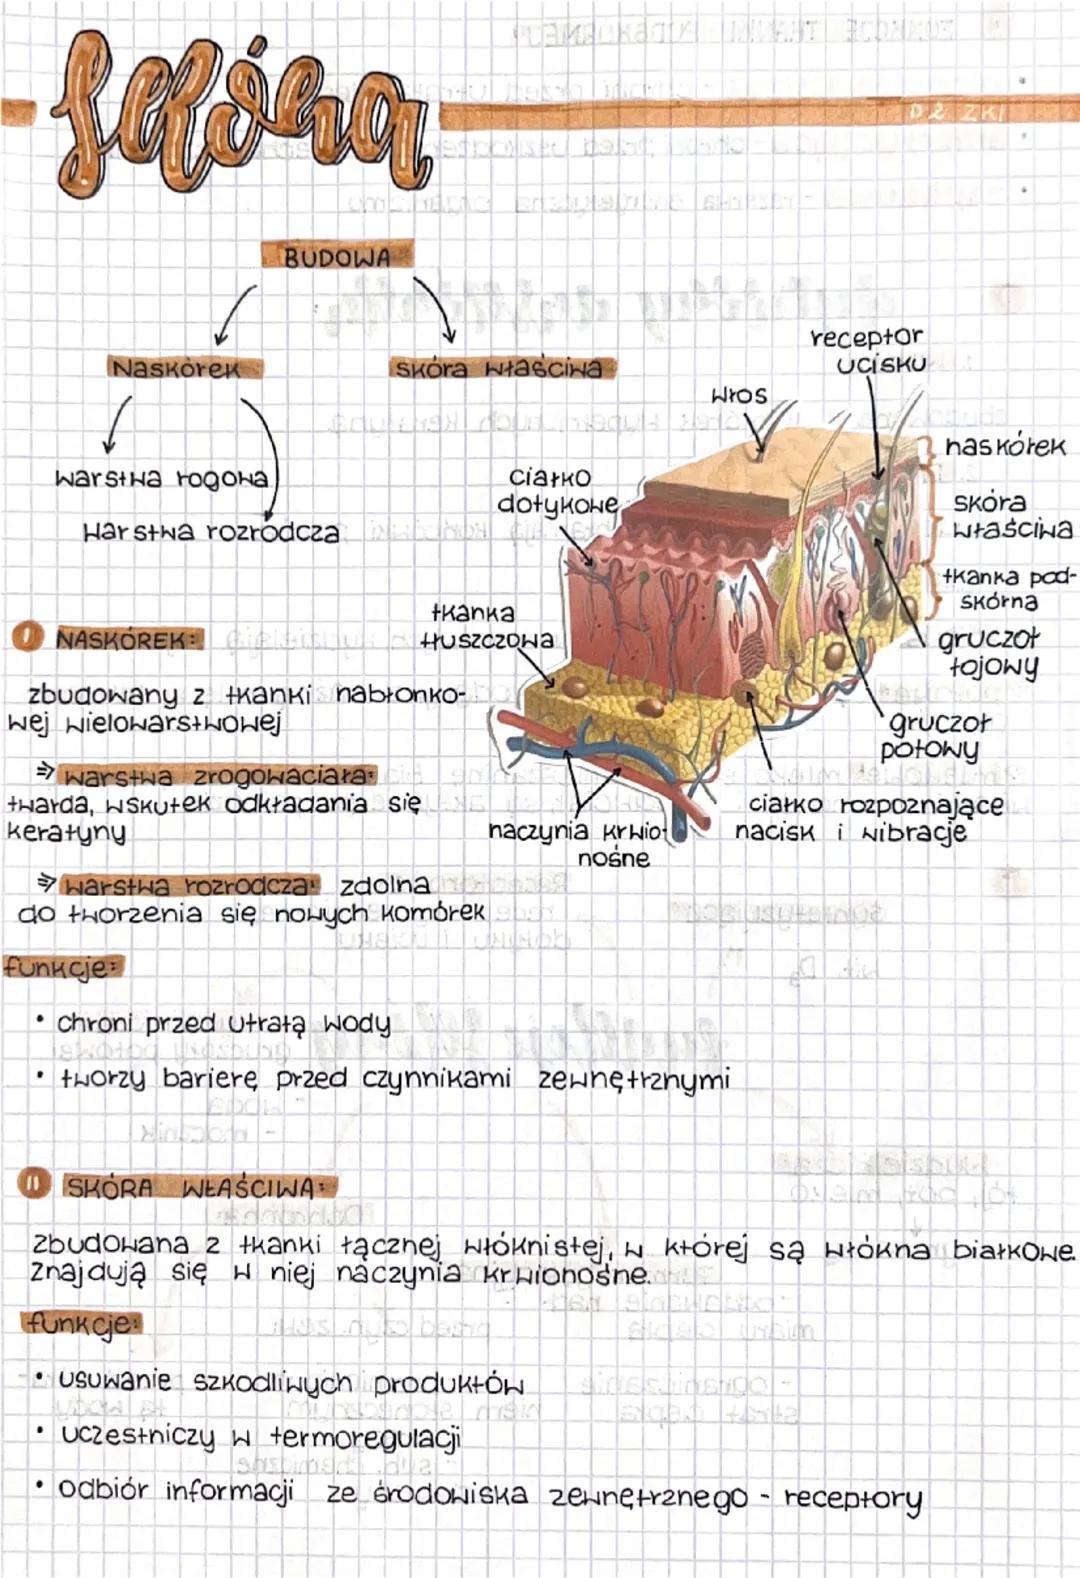 Skóra
BUDOWA
Naskórek
skóra właściwa
warstwa rogowa
warstwa rozrodcza
receptor
ucisku
włos
ciałko
dotykowe
naskórek
skóra
właściwa
tkanka pod-
skórna
gruczoł
łojowy
gruczoł
potowy
tkanka
tłuszczowa
ciałko rozpoznające
nacisk i wibracje
naczynia krwio-
nośne
I NASKÓREK:
zbudowany z tkanki nabłonko-
wej wielowarstwowej
⇒ warstwa zrogowaciała:
twarda, wskutek odkładania się
keratyny
⇒ warstwa rozrodcza: zdolna
do tworzenia się nowych komórek
funkcje:
• chroni przed utratą wody
• tworzy barierę przed czynnikami zewnętrznymi
II SKÓRA WŁAŚCIWA:
zbudowana z tkanki łącznej włóknistej, w której są włókna białkowe.
Znajdują się w niej naczynia krwionośne.
funkcje:
• usuwanie szkodliwych produktów
• uczestniczy w termoregulacji
• odbiór informacji ze środowiska zewnętrznego - receptory